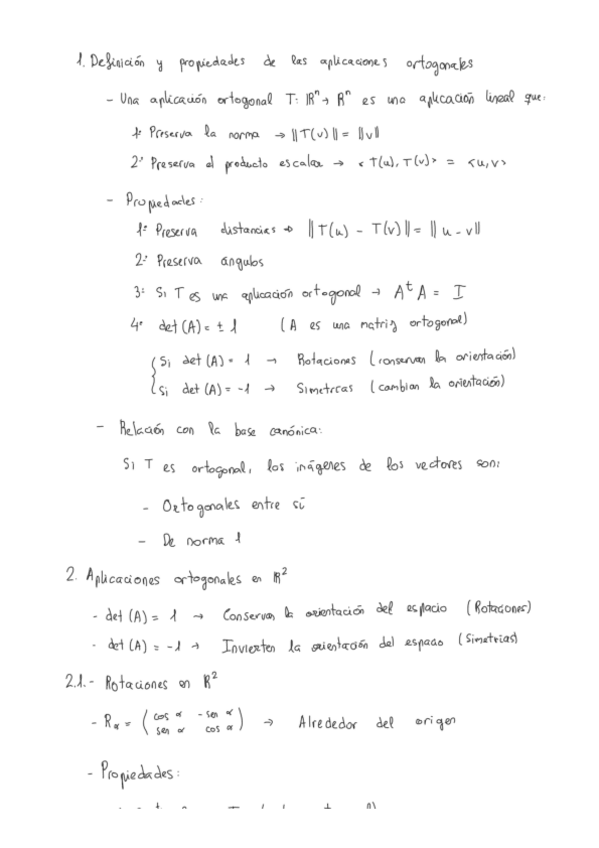 1. Definición y propiedades de las aplicaciones ortogonales
- Una aplicación ortogonal T: ℝⁿ → ℝⁿ es una aplicación lineal que:
1º Preserva la norma → ||T(v)|| = ||v||
2º Preserva el producto escalar → <T(u), T(v)> = <u,v>
- Propiedades:
1º Preserva distancias → ||T(u) - T(v)|| = ||u - v||
2º Preserva ángulos
3º Si T es una aplicación ortogonal → Aᵗ A = I
4º det(A) = ± 1 (A es una matriz ortogonal)
Si det(A) = 1 → Rotaciones (conservan la orientación)
Si det(A) = -1 → Simetrías (cambian la orientación)
- Relación con la base canónica:
Si T es ortogonal, las imágenes de los vectores son:
- Ortogonales entre sí
- De norma 1
2. Aplicaciones ortogonales en ℝ²
- det(A) = 1 → Conservan la orientación del espacio (Rotaciones)
- det(A) = -1 → Invierten la orientación del espacio (Simetrías)
2.1.- Rotaciones en ℝ²
- Rα = (cos α -sen α
sen α cos α) → Alrededor del origen
- Propiedades: